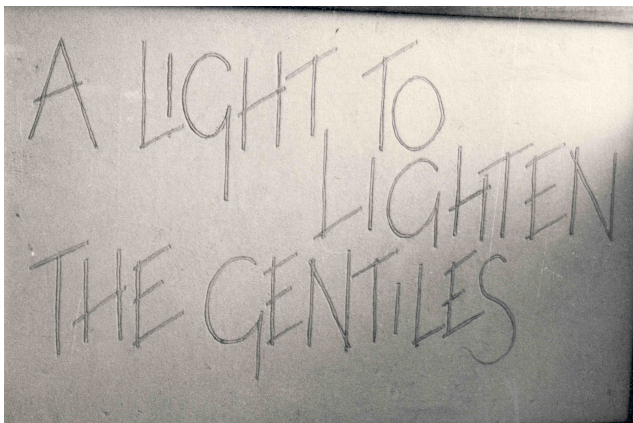 A LIGHT TO
LIGHTEN
THE GENTILES